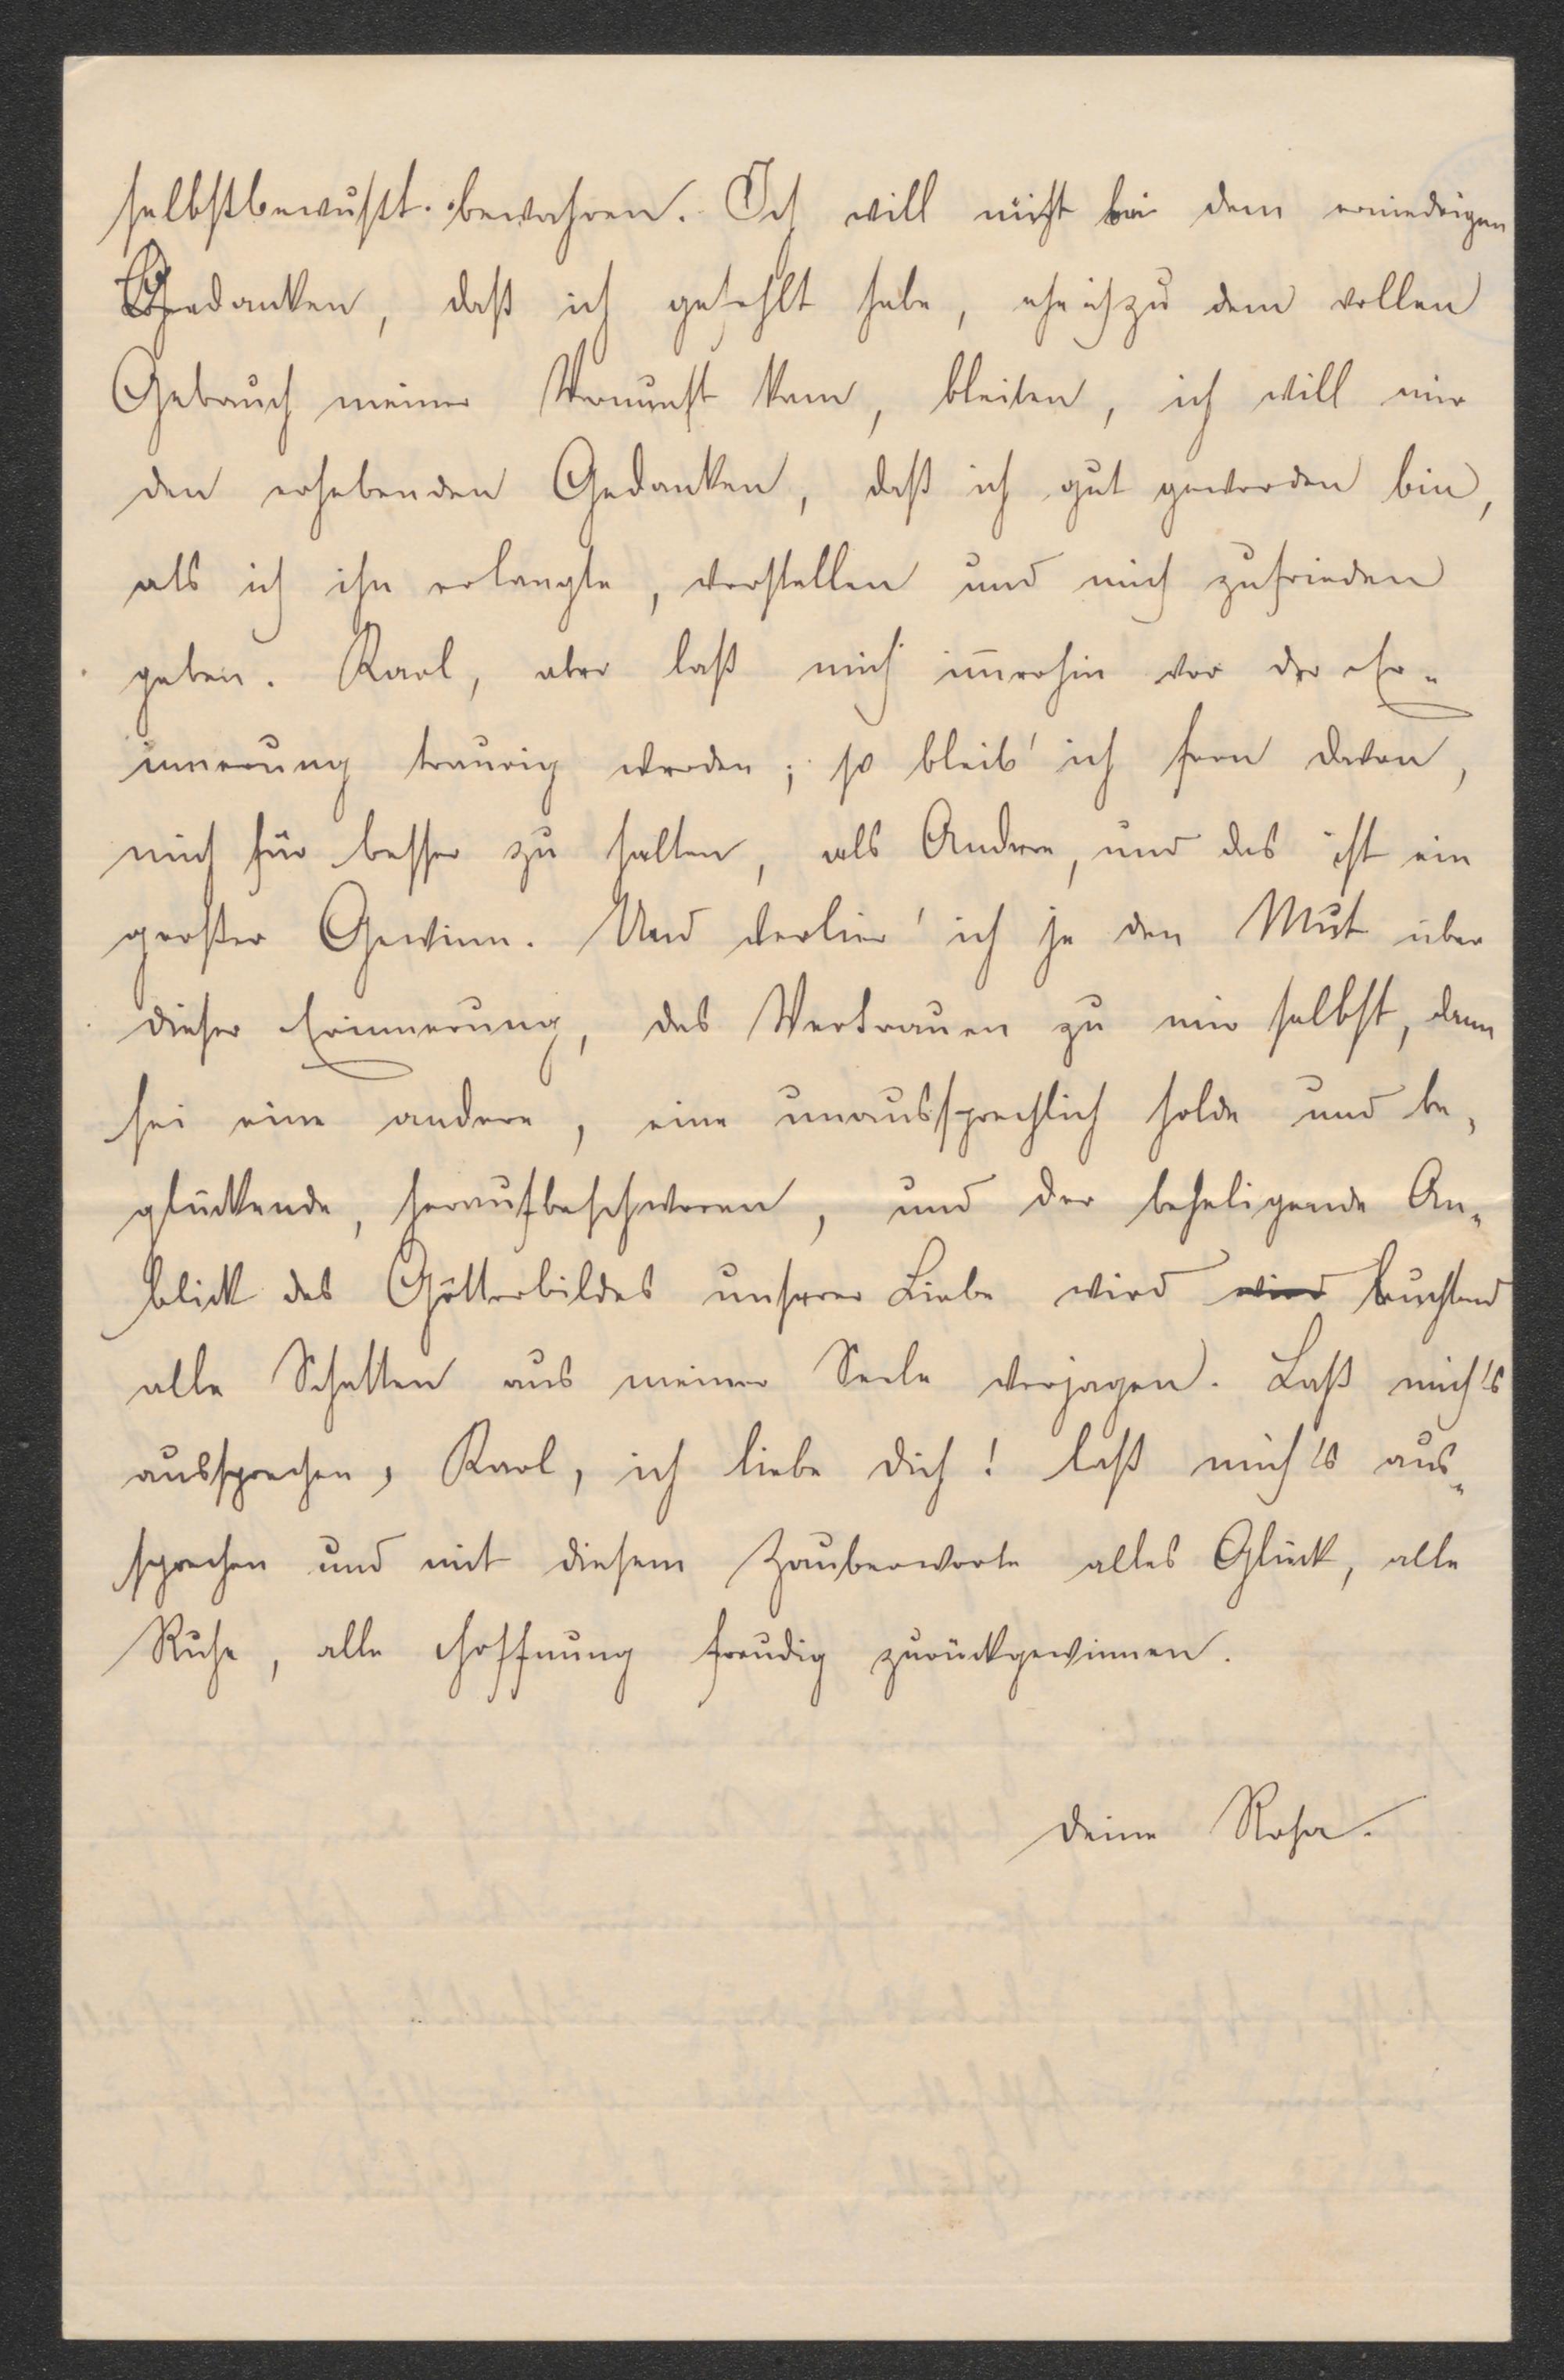 selbstbewußt bewahren. Ich will nicht bei dem erniedrigen
Gedanken, daß ich gefehlt habe, ehe ich zu dem vollen
Gebrauch meiner Vernunft kam, bleiben, ich will mir
den erhebenden Gedanken, daß ich gut geworden bin,
als ich ihn erlangte, vorstellen und mich zufrieden
geben. Karl, aber laß mich im̅erhin vor der Er-
innerung traurig werden; so bleib' ich fern davon,
mich für besser zu halten, als Andere, und das ist ein
großer Gewinn. Und verlier' ich je den Mut über
dieser Erinnerung, das Vertrauen zu mir selbst, dann
sei eine andere, eine unaussprechlich holde und be-
glückende, heraufbeschworen, und der beseligende An-
blick des Götterbildes unserer Liebe wird wird leuchtend
alle Schatten aus meiner Seele verjagen. Laß mich's
aussprechen, Karl, ich liebe dich! laß mich's aus-
sprechen und mit diesem Zauberworte alles Glück, alle
Ruhe, alle Hoffnung freudig zurückgewinnen.
Deine Rosa.